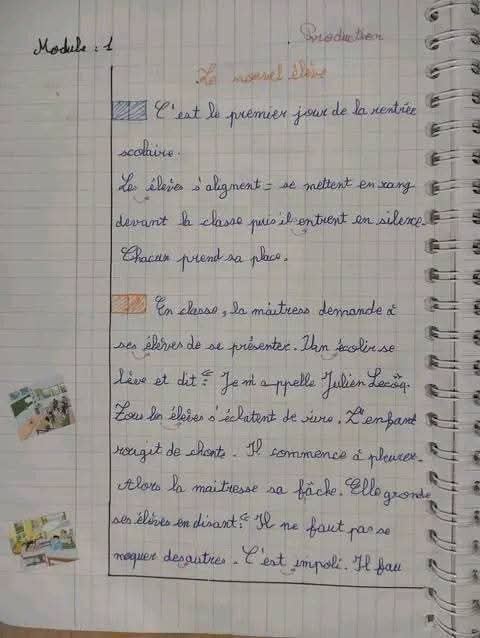 Module : 1
Production
Le nouvel élève
C'est le premier jour de la rentrée
scolaire.
Les élèves s'alignent = se mettent en rang
devant la classe puis il entrent en silence.
Chacun prend sa place.
En classe, la maitress demande à
ses élèves de se présenter. Un écolir se
lève et dit : " Je m'appelle Julien Lecoq.
Tous les élèves s'éclatent de rire. L'enfant
rougit de chonte. Il commence à pleurer.
Alors la maitresse sa fâche. Elle gronde
ses élèves en disant : " Il ne faut pas se
moquer des autres. C'est impoli. Il fau